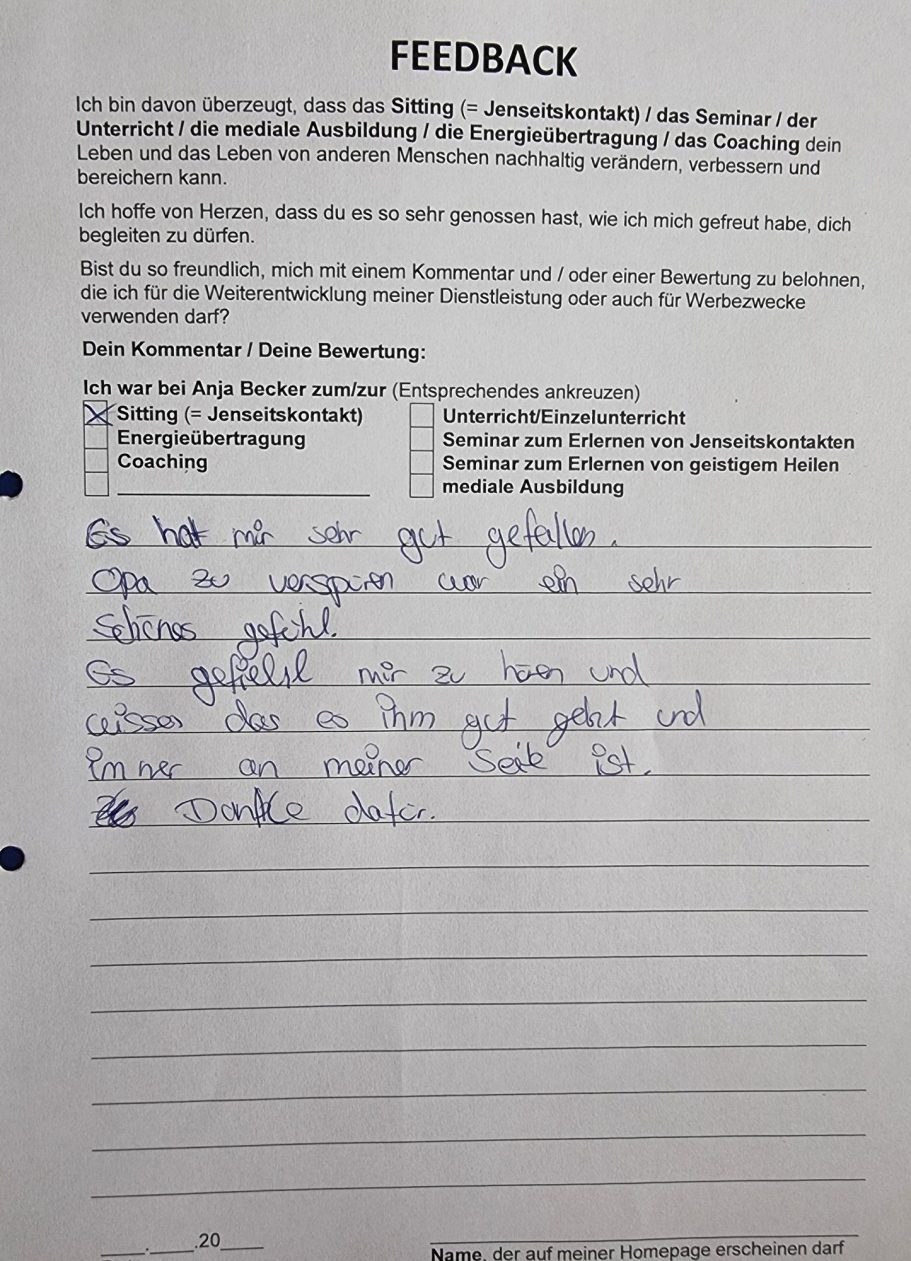 FEEDBACK
Ich bin davon überzeugt, dass das Sitting (= Jenseitskontakt) / das Seminar / der
Unterricht / die mediale Ausbildung / die Energieübertragung / das Coaching dein
Leben und das Leben von anderen Menschen nachhaltig verändern, verbessern und
bereichern kann.
Ich hoffe von Herzen, dass du es so sehr genossen hast, wie ich mich gefreut habe, dich
begleiten zu dürfen.
Bist du so freundlich, mich mit einem Kommentar und / oder einer Bewertung zu belohnen,
die ich für die Weiterentwicklung meiner Dienstleistung oder auch für Werbezwecke
verwenden darf?
Dein Kommentar / Deine Bewertung:
Ich war bei Anja Becker zum/zur (Entsprechendes ankreuzen)
Sitting (= Jenseitskontakt)
Energieübertragung
Coaching
Unterricht/Einzelunterricht
Seminar zum Erlernen von Jenseitskontakten
Seminar zum Erlernen von geistigem Heilen
mediale Ausbildung
Es hat mir sehr gut gefallen.
Opa zu verspüren war ein sehr
Schönes gefühl.
Es gefiehl mir zu hören und
wissen das es ihm gut geht und
immer an meiner Seite ist.
Danke dafür.
____.____.20____
Name, der auf meiner Homepage erscheinen darf